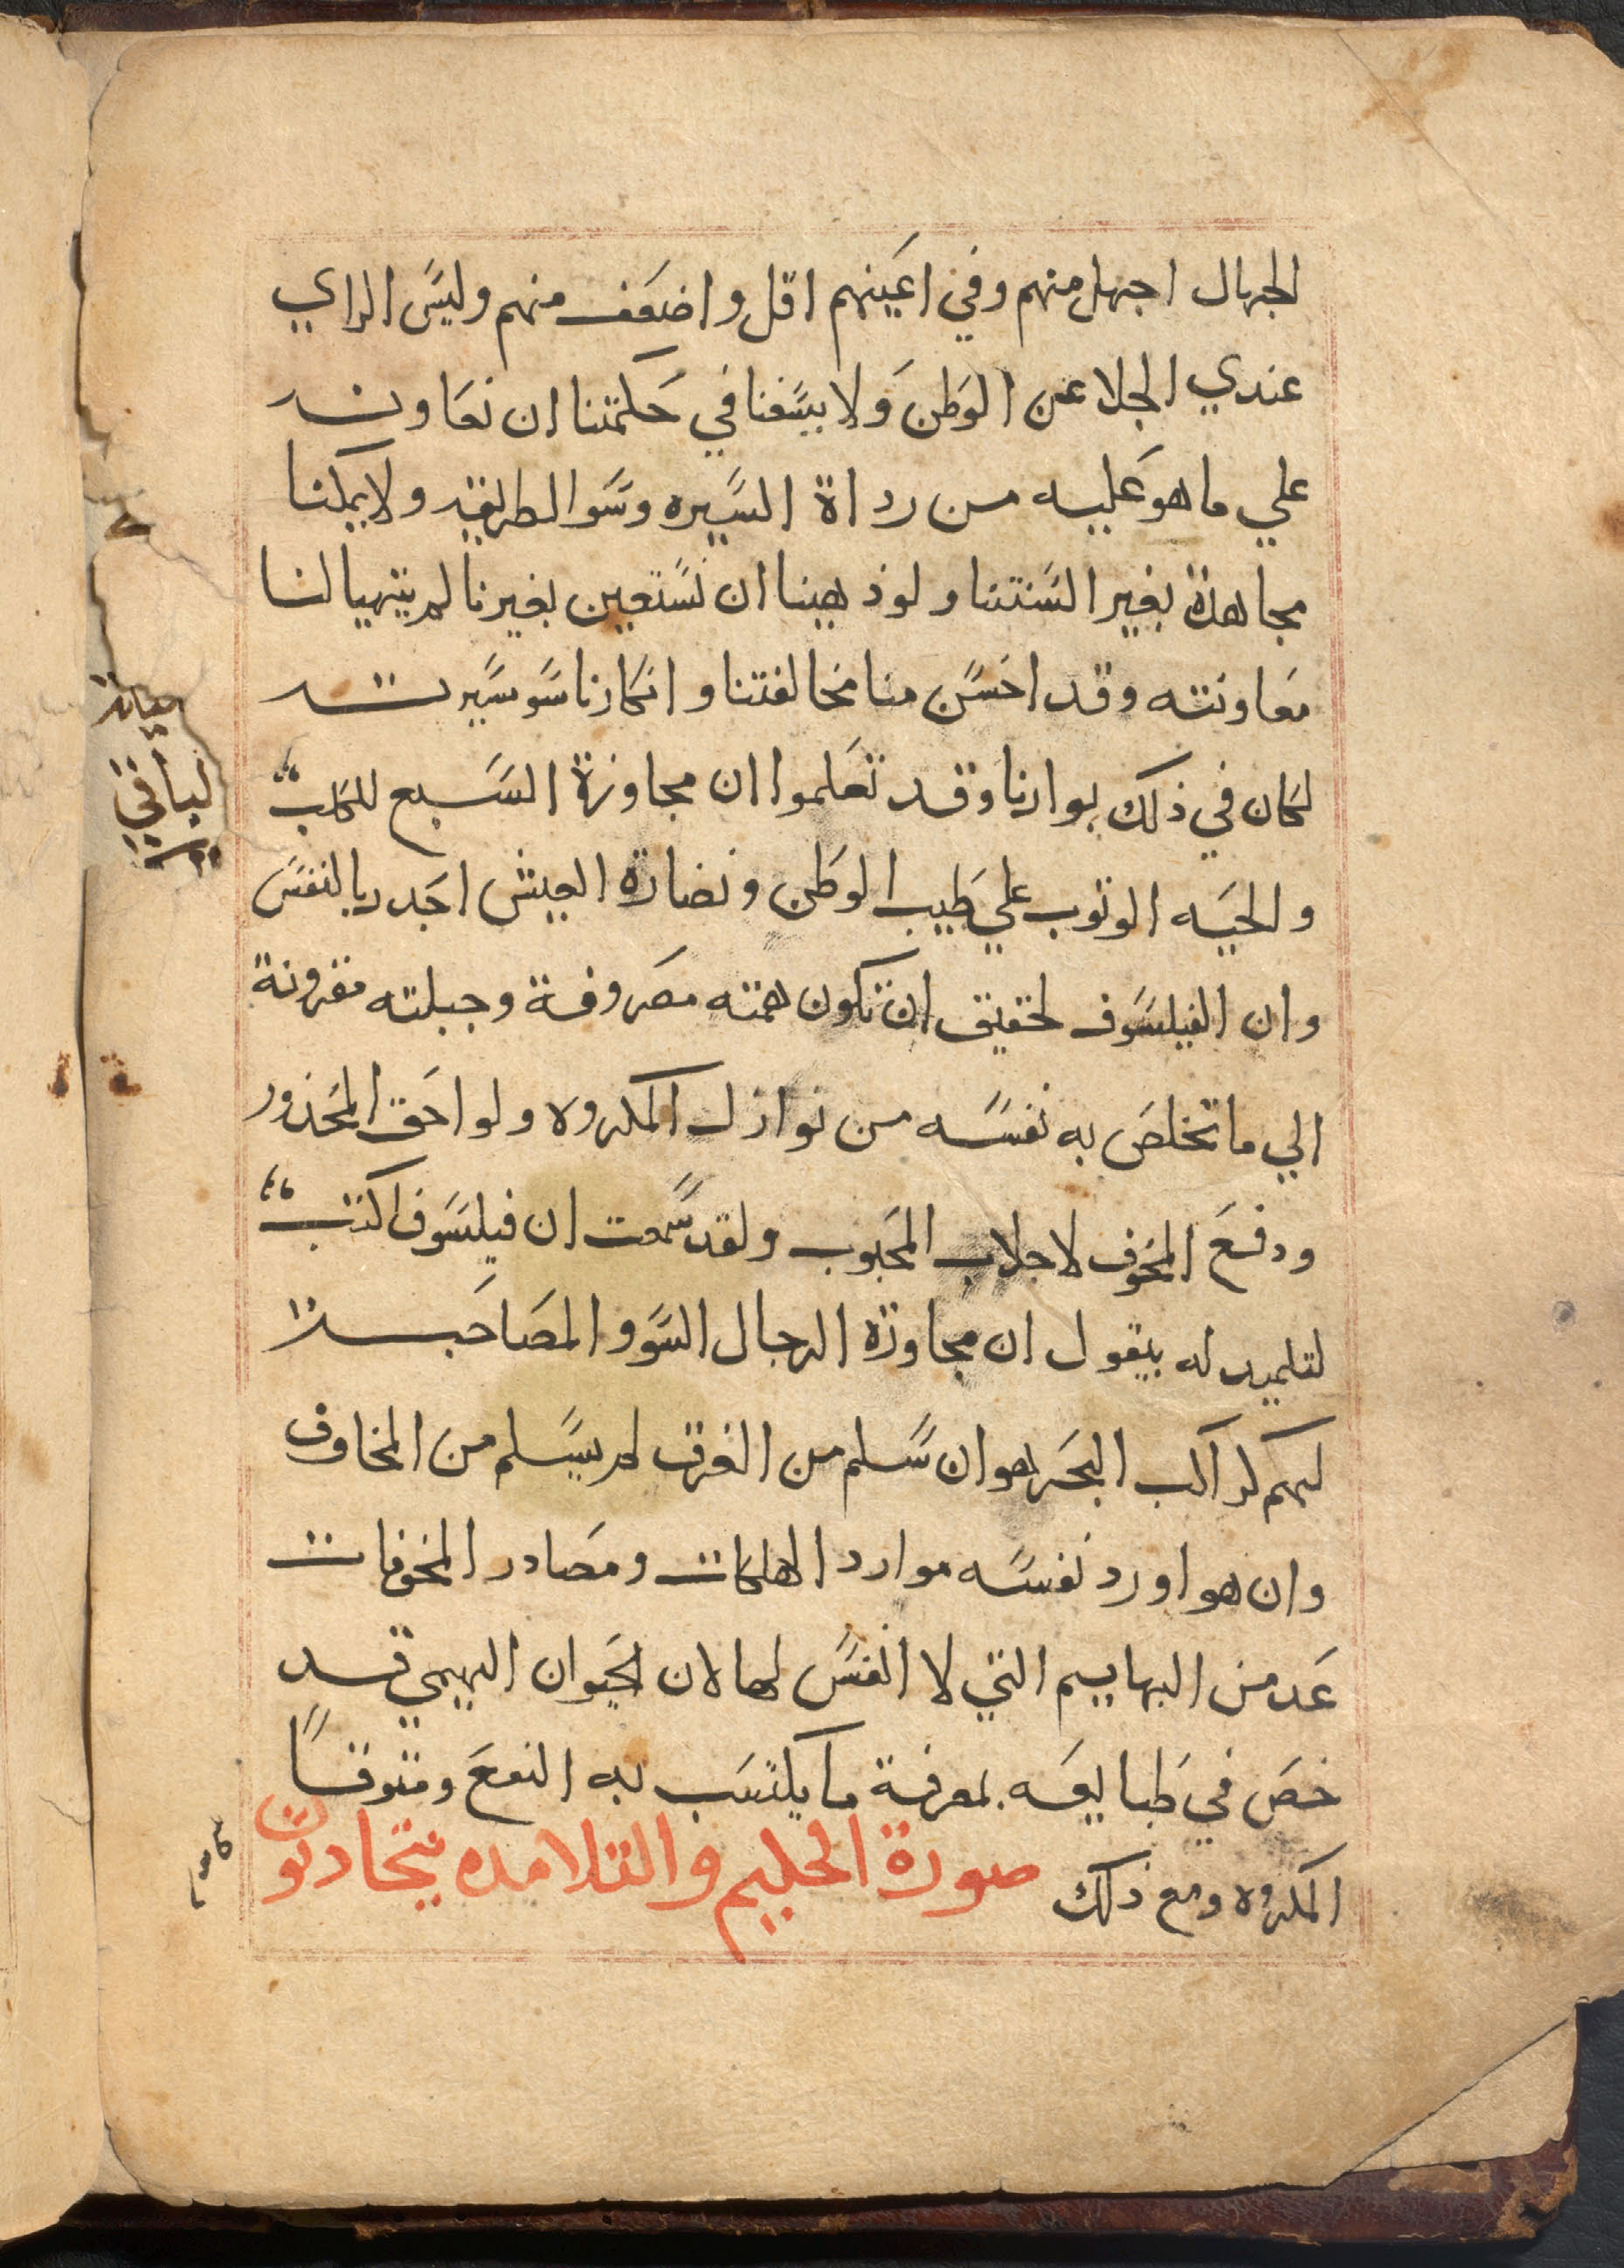 الجهال اجهل منهم وفي اعينهم اقل واضعف منهم وليس الراي
عندي الجلا عن الوطن ولا يسعنا في حكمتنا ان نعاونه
علي ما هو عليه من رداة السيره وسوا الطريقه ولا يمكنا
مجاهدة بغير السنتنا ولو ذهبنا ان نستعين بغيرنا لم يتهيا لنا
معاونته وقد احسن منا مخالفتنا وانكارنا سو سيرته
لكان في ذلك بوارنا وقد تعلموا ان مجاورة السبع للكلب
والحيه الوثوب علي طيب الوطن ونضارة العيش اجدر بالنفس
وان الفيلسوف لحقيق ان تكون همته مصروفة وجبلته مقرونة
الي ما تخلص به نفسه من نوازل المكروه ولواحق المحذور
ودفع المخوف لاجلاب المحبوب ولقد سمعت ان فيلسوف اكتب
لتلميد له يقول ان مجاورة الرجال السو والمصاحبة
لهم كراكب البحر هو ان سلم من الغرق لم يسلم من المخاوف
وان هو اورد نفسه موارد الهلكات ومصادر المخوفات
عد من البهايم التي لا انفس لها لان الحيوان البهيمي قد
خص في طبايعه بمعرفة ما يكتسب به النفع ومتوقا
المكروه ومع ذلك صورة الحكيم والتلامده يتحادثون
لباقي